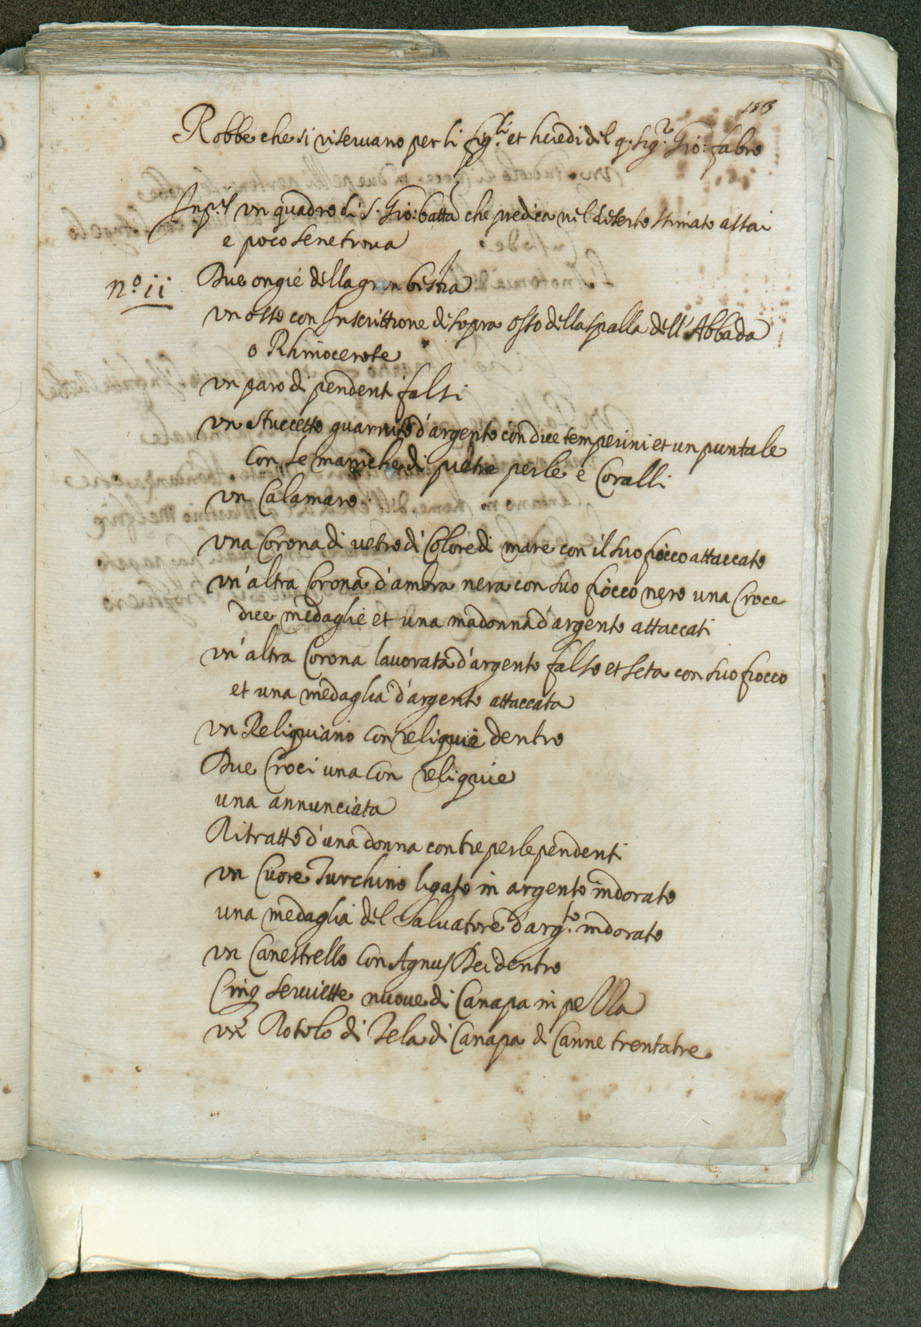 Robbe che si riseruano per li fig.li et heredi del q. sig.re Gio: fabro
Inp.s un quadro di s. Gio: batta che predica nel deserto stimato assai
e poco se ne troua
n.o 11
Due ongie della gran bestia
un osso con Inscrittione di sopra osso della spalla dell'Abbada
o Rhinocerote
un paro di pendenti falsi
un stuccetto guarnito d'argento con dice temperini et un puntale
con le maniche di pietre perle e Coralli
un Calamaro
una Corona di uetro di Colore di mare con il suo fiocco attaccato
un'altra Corona d'ambra nera con suo fiocco nero una Croce
dice medaglie et una madonna d'argento attaccati
un'altra Corona lauorata d'argento falso et seta con suo fiocco
et una medaglia d'argento attaccata
un Reliquiario con reliquie dentro
Due Croci una con reliquie
una annunciata
Ritratto d'una donna con tre perle pendenti
un Cuore Turchino ligato in argento indorato
una medaglia del saluatore d'arg.to indorato
un Canestrello con Agnus Dei dentro
Cinq seruiette nuoue di Canapa in pezza
un Rotolo di Tela di Canapa di Canne trentatre